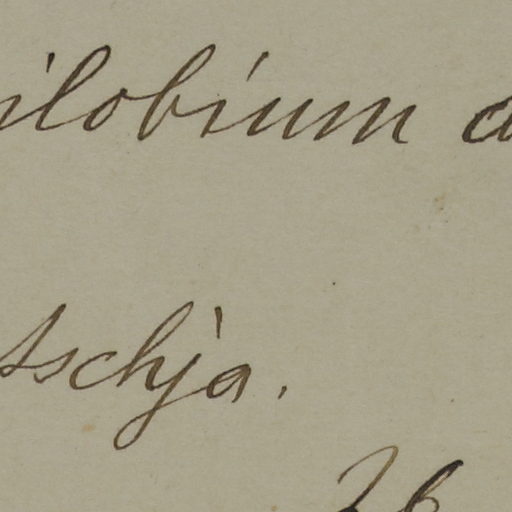 ilobium
tschja.
26